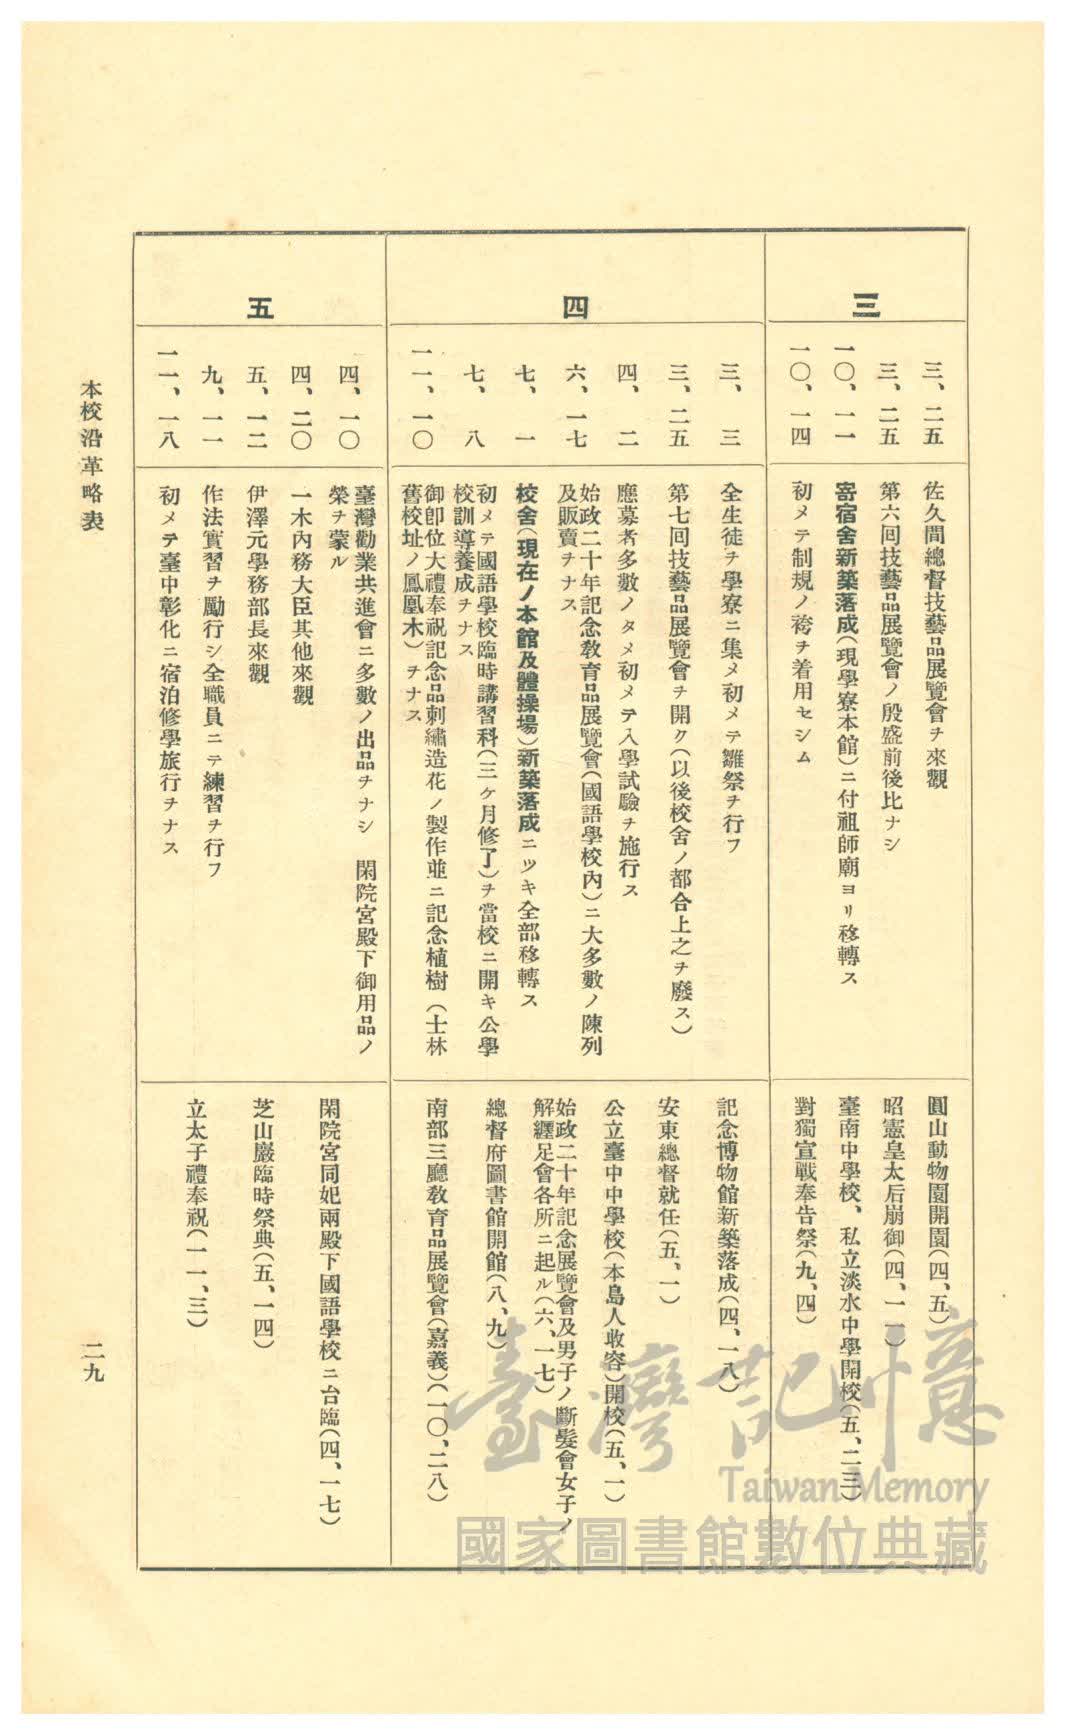 三
三、二五
三、二五
一〇、一一
一〇、一四
佐久間總督技藝品展覽會ヲ來觀
第六回技藝品展覽會ノ殷盛前後比ナシ
寄宿舍新築落成(現學寮本館)ニ付祖師廟ヨリ移轉ス
初メテ制規ノ袴ヲ着用セシム
圓山動物園開園(四、五)
昭憲皇太后崩御(四、一一)
臺南中學校、私立淡水中學開校(五、二三)
對獨宣戰奉告祭(九、四)
四
三、三
三、二五
四、二
六、一七
七、一
七、八
一一、一〇
全生徒ヲ學寮ニ集メ初メテ雛祭ヲ行フ
第七回技藝品展覽會ヲ開ク(以後校舍ノ都合上之ヲ廢ス)
應募者多數ノタメ初メテ入學試驗ヲ施行ス
始政二十年記念教育品展覽會(國語學校內)ニ大多數ノ陳列
及販賣ヲナス
校舍(現在ノ本館及體操場)新築落成ニツキ全部移轉ス
初メテ國語學校臨時講習科(三ケ月修了)ヲ當校ニ開キ公學
校訓導養成ヲナス
御卽位大禮奉祝記念品刺繡造花ノ製作並ニ記念植樹(士林
舊校址ノ鳳凰木)ヲナス
記念博物館新築落成(四、一八)
安東總督就任(五、一)
公立臺中中學校(本島人收容)開校(五、一)
始政二十年記念展覽會及男子ノ斷髮會女子ノ
解纏足會各所ニ起ル(六、一七)
總督府圖書館開館(八、九)
南部三廳教育品展覽會(嘉義)(一〇、二八)
五
四、一〇
四、二〇
五、一二
九、一一
一一、一八
臺灣勸業共進會ニ多數ノ出品ヲナシ 閑院宮殿下御用品ノ
榮ヲ蒙ル
一木內務大臣其他來觀
伊澤元學務部長來觀
作法實習ヲ勵行シ全職員ニテ練習ヲ行フ
初メテ臺中彰化ニ宿泊修學旅行ヲナス
閑院宮同妃兩殿下國語學校ニ台臨(四、一七)
芝山巖臨時祭典(五、一四)
立太子禮奉祝(一一、三)
本校沿革略表
二九
臺灣記憶
Taiwan Memory
國家圖書館數位典藏